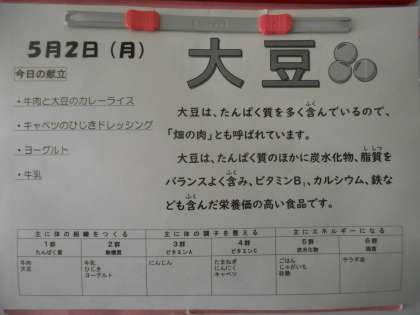 5月2日（月）
今日の献立
・牛肉と大豆のカレーライス
・キャベツのひじきドレッシング
・ヨーグルト
・牛乳
大豆
大豆は、たんぱく質を多く含んでいるので、
「畑の肉」とも呼ばれています。
大豆は、たんぱく質のほかに炭水化物、脂質を
バランスよく含み、ビタミンB₁、カルシウム、鉄な
ども含んだ栄養価の高い食品です。
主に体の組織をつくる 主に体の調子を整える 主にエネルギーになる
1群 2群 3群 4群 5群 6群
たんぱく質 無機質 ビタミンA ビタミンC 炭水化物 脂質
牛肉 牛乳 にんじん たまねぎ ごはん サラダ油
大豆 ひじき にんにく じゃがいも
ヨーグルト キャベツ 砂糖